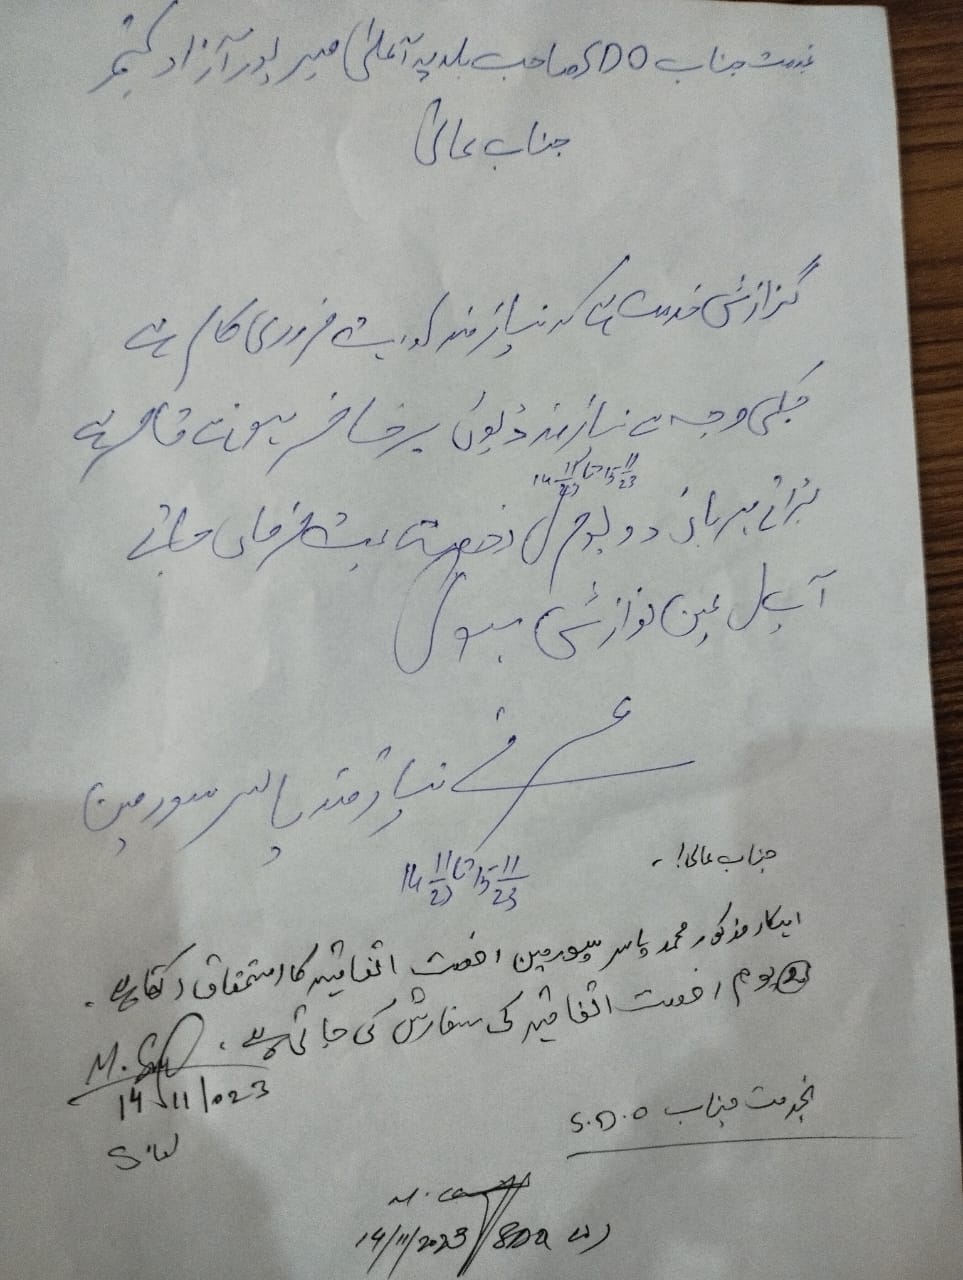 بخدمت جناب SDO صاحب بلدیہ اعلیٰ میرپور آزاد کشمیر
جناب عالی
گزارش خدمت ہے کہ نیازمند کو بہت ضروری کام ہے
جسکی وجہ سے نیازمند ڈیوٹی پر حاضر ہونے قاصر ہے
14 11/23 تا 15 11/23
برائے مہربانی دو یوم کی رخصت عنایت فرمائی جائے
آپ کی عین نوازش ہو گی
عرضے نیازمند یاسر سپورمین
14 11/23 تا 15 11/23
جناب عالی!
اہلکار مذکور محمد یاسر سپورمین رخصت اتفاقیہ کا استحقاق رکھتا ہے۔
2 یوم رخصت اتفاقیہ کی سفارش کی جاتی ہے۔
14/11/023
بخدمت جناب S.D.O
14/11/2023